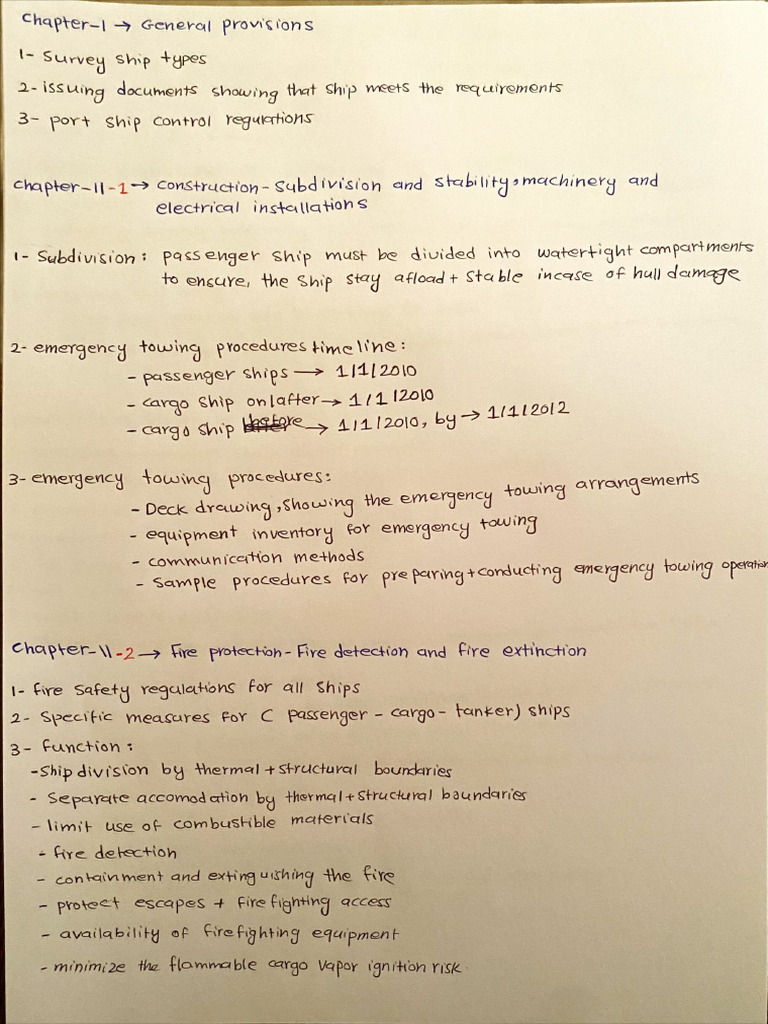 Chapter-I → General provisions
1- Survey ship types
2- issuing documents showing that ship meets the requirements
3- port ship control regulations
Chapter-II-1 → construction - Subdivision and stability, machinery and
electrical installations
1- Subdivision: passenger ship must be divided into watertight compartments
to ensure, the ship stay afload + stable incase of hull damage
2- emergency towing procedures timeline:
- passenger ships → 1/1/2010
- cargo ship on/after → 1/1/2010
- cargo ship before → 1/1/2010, by → 1/1/2012
3- emergency towing procedures:
- Deck drawing, showing the emergency towing arrangements
- equipment inventory for emergency towing
- communication methods
- Sample procedures for preparing + conducting emergency towing operation
Chapter-II-2 → Fire protection - Fire detection and fire extinction
1- fire safety regulations for all ships
2- Specific measures for ( passenger - cargo - tanker) ships
3- Function:
- Ship division by thermal + structural boundaries
- Separate accomodation by thermal + structural boundaries
- limit use of combustible materials
- fire detection
- containment and extinguishing the fire
- protect escapes + firefighting access
- availability of firefighting equipment
- minimize the flammable cargo vapor ignition risk.